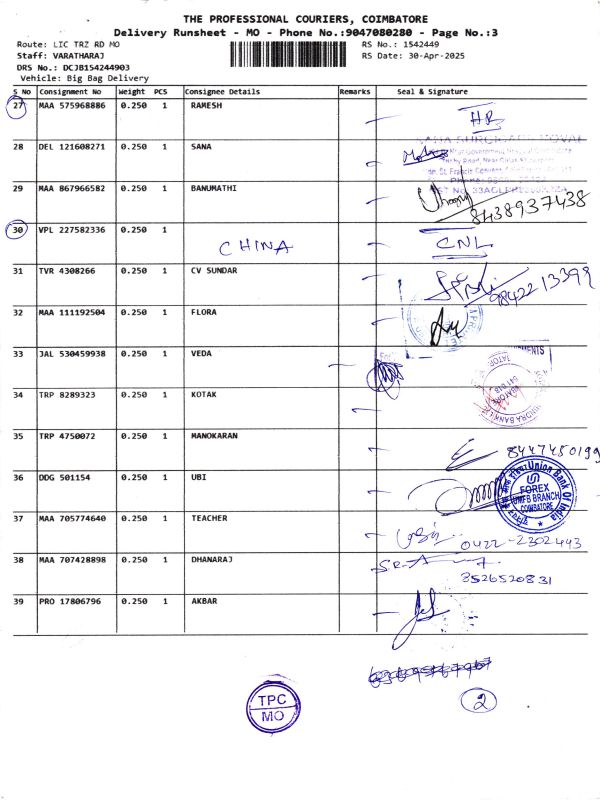 THE PROFESSIONAL COURIERS, COIMBATORE
Delivery Runsheet - MO - Phone No.:9047080280 - Page No.:3
Route: LIC TRZ RD MO
RS No.: 1542449
Staff: VARATHARAJ
RS Date: 30-Apr-2025
DRS No.: DCJB154244903
Vehicle: Big Bag Delivery
S No Consignment No Weight PCS Consignee Details Remarks Seal & Signature
27 MAA 575968886 0.250 1 RAMESH HR
28 DEL 121608271 0.250 1 SANA
29 MAA 867966582 0.250 1 BANUMATHI
8438937438
30 VPL 227582336 0.250 1 CNL
CHINA
31 TVR 4308266 0.250 1 CV SUNDAR
9842213399
32 MAA 111192504 0.250 1 FLORA
33 JAL 530459938 0.250 1 VEDA
34 TRP 8289323 0.250 1 KOTAK
35 TRP 4750072 0.250 1 MANOKARAN
8447450199
36 DDG 501154 0.250 1 UBI
Union Bank Of India
FOREX
UMFB BRANCH
COIMBATORE
37 MAA 705774640 0.250 1 TEACHER
0422-2302443
38 MAA 707428898 0.250 1 DHANARAJ
3526520831
39 PRO 17806796 0.250 1 AKBAR
TPC
MO
2